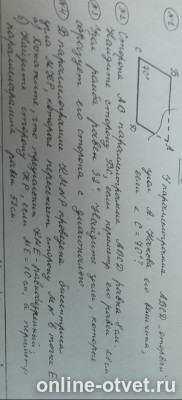 №1
B
C
70°
A
D
У параллелограмма ABCD "оторвали"
угол A. Какова его величина,
если ∠C = 70°?
№2
Сторона AD параллелограмма ABCD равна 8 см.
Найдите сторону DC, если периметр его равен 28 см
№3
Угол ромба равен 38°. Найдите углы, которые
образует его сторона с диагоналями
№4
В параллелограмме KMNP проведена биссектриса
угла MKP, которая пересекает сторону MN в точке E.
а) Докажите, что треугольник KME - равнобедренный
б) Найдите сторону KP, если ME = 10 см, а периметр
параллелограмма равен 52 см
online-otvet.ru